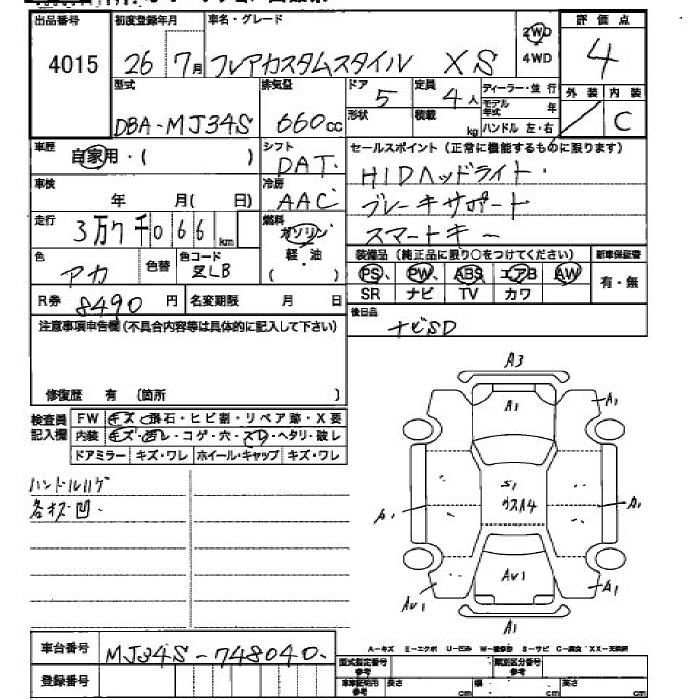 出品番号 初度登録年月 車名・グレード 評価点
4015 26 7月 フレアカスタムスタイル XS 2WD 4WD 4
型式 排気量 ドア 5 定員 4人 ディーラー・並行 外装 内装
DBA-MJ34S 660cc 形状 積載 kg モデル年式 年 ハンドル 左・右 / C
車歴 自家用・( ) シフト DAT セールスポイント(正常に機能するものに限ります)
車検 年 月( 日) 冷房 AAC HIDヘッドライト
ブレーキサポート
走行 3万7千066km 燃料 ガソリン スマートキー
色 アカ 色替 色コード 軽油 ( ) 装備品(純正品に限り○をつけてください) 新車保証書
PS PW ABS エアB AW 有・無
SR ナビ TV カワ
R券 8490円 名変期限 月 日 後日品 ナビSD
注意事項申告欄(不具合内容等は具体的に記入して下さい)
修復歴 有 (箇所 )
検査員記入欄 FW キズ・飛石・ヒビ割・リペア跡・X要
内装 キズ・汚レ・コゲ・穴・スレ・ヘタリ・破レ
ドアミラー キズ・ワレ ホイール・キャップ キズ・ワレ
ハンドルハゲ
各キズ凹
A3
A1 A1
S1
ウスA4
A1 A1
AU1 AU1 A1
A1
A-キズ E-エクボ U-凹み W-補修跡 S-サビ C-腐食 XX-交換済
車台番号 MJ34S-748040
登録番号
型式指定番号 参考 類別区分番号 参考
車車証明用 参考 長さ cm 幅 cm 高さ cm